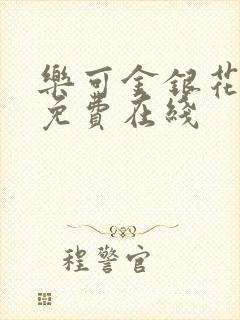 樂可金銀花
免費在綫
程警官